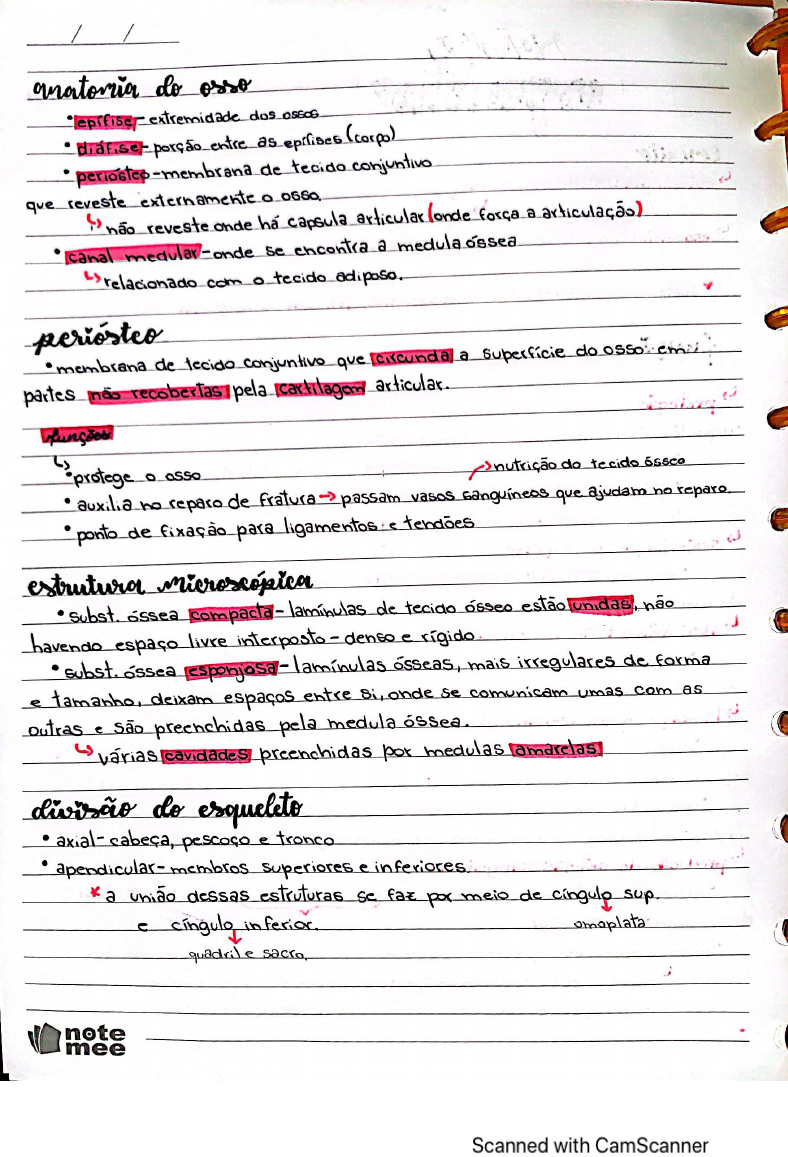 / /
anatomia do osso
• epífise - extremidade dos ossos
• diáfise - porção entre as epífises (corpo)
• periósteo - membrana de tecido conjuntivo
que reveste externamente o osso.
↳ não reveste onde há capsula articular (onde força a articulação)
• canal medular - onde se encontra a medula óssea
↳ relacionado com o tecido adiposo.
periósteo
• membrana de tecido conjuntivo que circunda a superfície do osso em
partes não recobertas pela cartilagem articular.
funções
↳
• protege o osso
→ nutrição do tecido ósseo
• auxilia no reparo de fratura → passam vasos sanguíneos que ajudam no reparo.
• ponto de fixação para ligamentos e tendões
estrutura microscópica
• subst. óssea compacta - lamínulas de tecido ósseo estão unidas, não
havendo espaço livre interposto - denso e rígido
• subst. óssea esponjosa - lamínulas ósseas, mais irregulares de forma
e tamanho, deixam espaços entre si, onde se comunicam umas com as
outras e são preenchidas pela medula óssea.
↳ várias cavidades preenchidas por medulas amarelas
divisão do esqueleto
• axial - cabeça, pescoço e tronco
• apendicular - membros superiores e inferiores.
* a união dessas estruturas se faz por meio de cíngulo sup.
e cíngulo inferior.
omoplata
quadril e sacro.
note
mee
Scanned with CamScanner